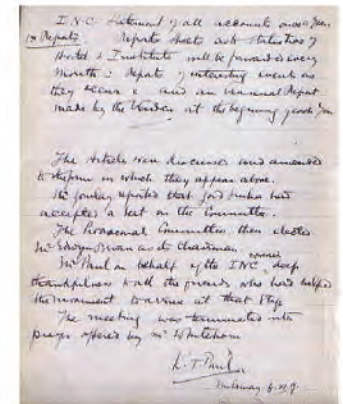 I.N.C. Statement of all accounts once a year.
Reports. Reports sheets and statistics of
Hostel & Institute will be forwarded every
month: reports of interesting events as
they occur & and an annual Report
made by the Warden at the beginning of each year
The Articles were discussed and amended
to the form in which they appear above.
Mr Gourlay reported that Lord Sinha had
accepted a seat on the Committee.
The Provisional Committee then elected
Mr as its Chairman
Mr Paul on behalf of the INC deep
thankfulness to all the friends who had helped
the movement to arrive at that stage
The meeting was terminated with
prayer offered by Mr Whitehorn
K. T. Paul